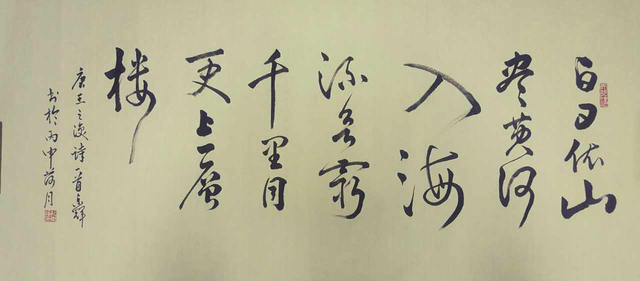 白日依山
尽黄河
入海
流欲窮
千里目
更上一層
楼
唐王之涣詩一首
书於丙申月